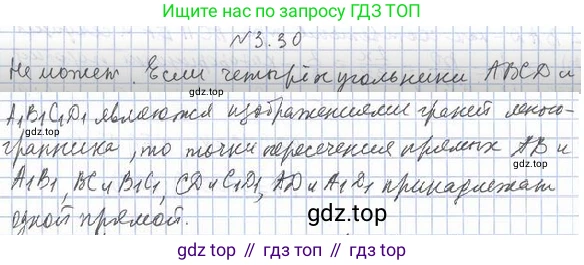 Ищите нас по запросу ГДЗ ТОП
№3.30
Не может. Если четырёхугольники ABCD и
A₁B₁C₁D₁ являются изображениями граней много-
гранника, то точки пересечения прямых AB и
A₁B₁, BC и B₁C₁, CD и C₁D₁, AD и A₁D₁ принадлежат
одной прямой.
gdz.top
gdz.top
gdz.top
gdz.top
gdz.top // гдз.топ // gdz.top // гдз.топ // gdz.top